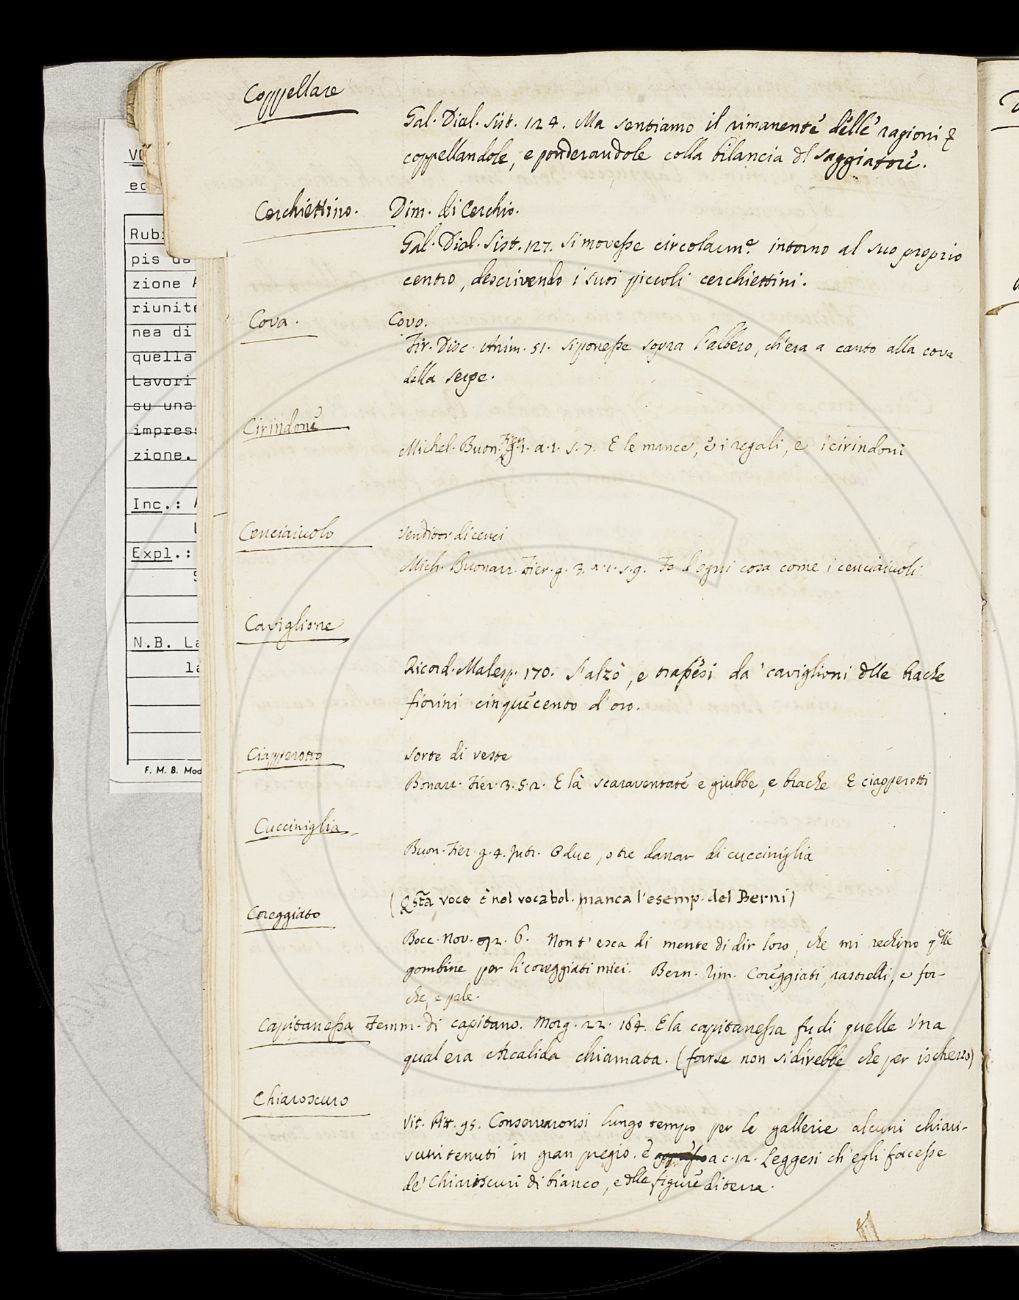 Coppellare
Gal. Dial. Sist. 124. Ma sentiamo il rimanente delle ragioni
coppellandole, e ponderandole colla bilancia dl saggiatore.
Cerchiettino. Dim. di Cerchio.
Gal. Dial. Sist. 127. Si movesse circolarmte intorno al suo proprio
centro, descrivendo i suoi piccoli cerchiettini.
Cova. Covo.
Fir. Disc. Anim. 51. Si ponesse sopra l'albero, ch'era a canto alla cova
della serpe.
Cirindone
Michel. Buon. Fier. g. 1. a. 1. s. 7. E le mance, e i regali, e i cirindoni
Cenciaiuolo Venditor di cenci
Mich. Buonarr. Fier. g. 3. a. 1. s. 9. Fo d'ogni cosa come i cenciaiuoli
Caviglione
Ricord. Malesp. 170. S'alzò, e trassesi da' caviglioni dlle brache
fiorini cinquecento d'oro.
Ciapperotto Sorte di veste
Bonarr. Fier. 3. 5. 2. E là scaraventate e giubbe, e brache E ciapperotti
Cucciniglia
Buon. Fier. g. 4. Intr. O due, o tre danar di cucciniglia
(Qsta voce è nel vocabol. manca l'esemp. del Berni)
Coreggiato
Bocc. Nov. 72. 6. Non t'esca di mente di dir loro, che mi rechino qlle
gombine per li coreggiati miei. Bern. rim. Coreggiati, rastrelli, e for-
che, e pale.
Capitanessa Femm. di capitano. Morg. 22. 164. E la capitanessa fu di quelle Una
qual era Arcalida chiamata. (forse non si direbbe che per ischerzo)
Chiaroscuro
Vit. Pit. 95. Conservaronsi lungo tempo per le gallerie alcuni chiari-
scuri tenuti in gran pregio. e a c. 12. Leggesi ch'egli facesse
de' Chiariscuri di bianco, e dlle figure di terra.
Rubr
pis da
zione A
riunite
nea di
quella
Lavori
su una
impress
zione.
Inc.:
Expl.:
N.B. La
F. M. B. Mod